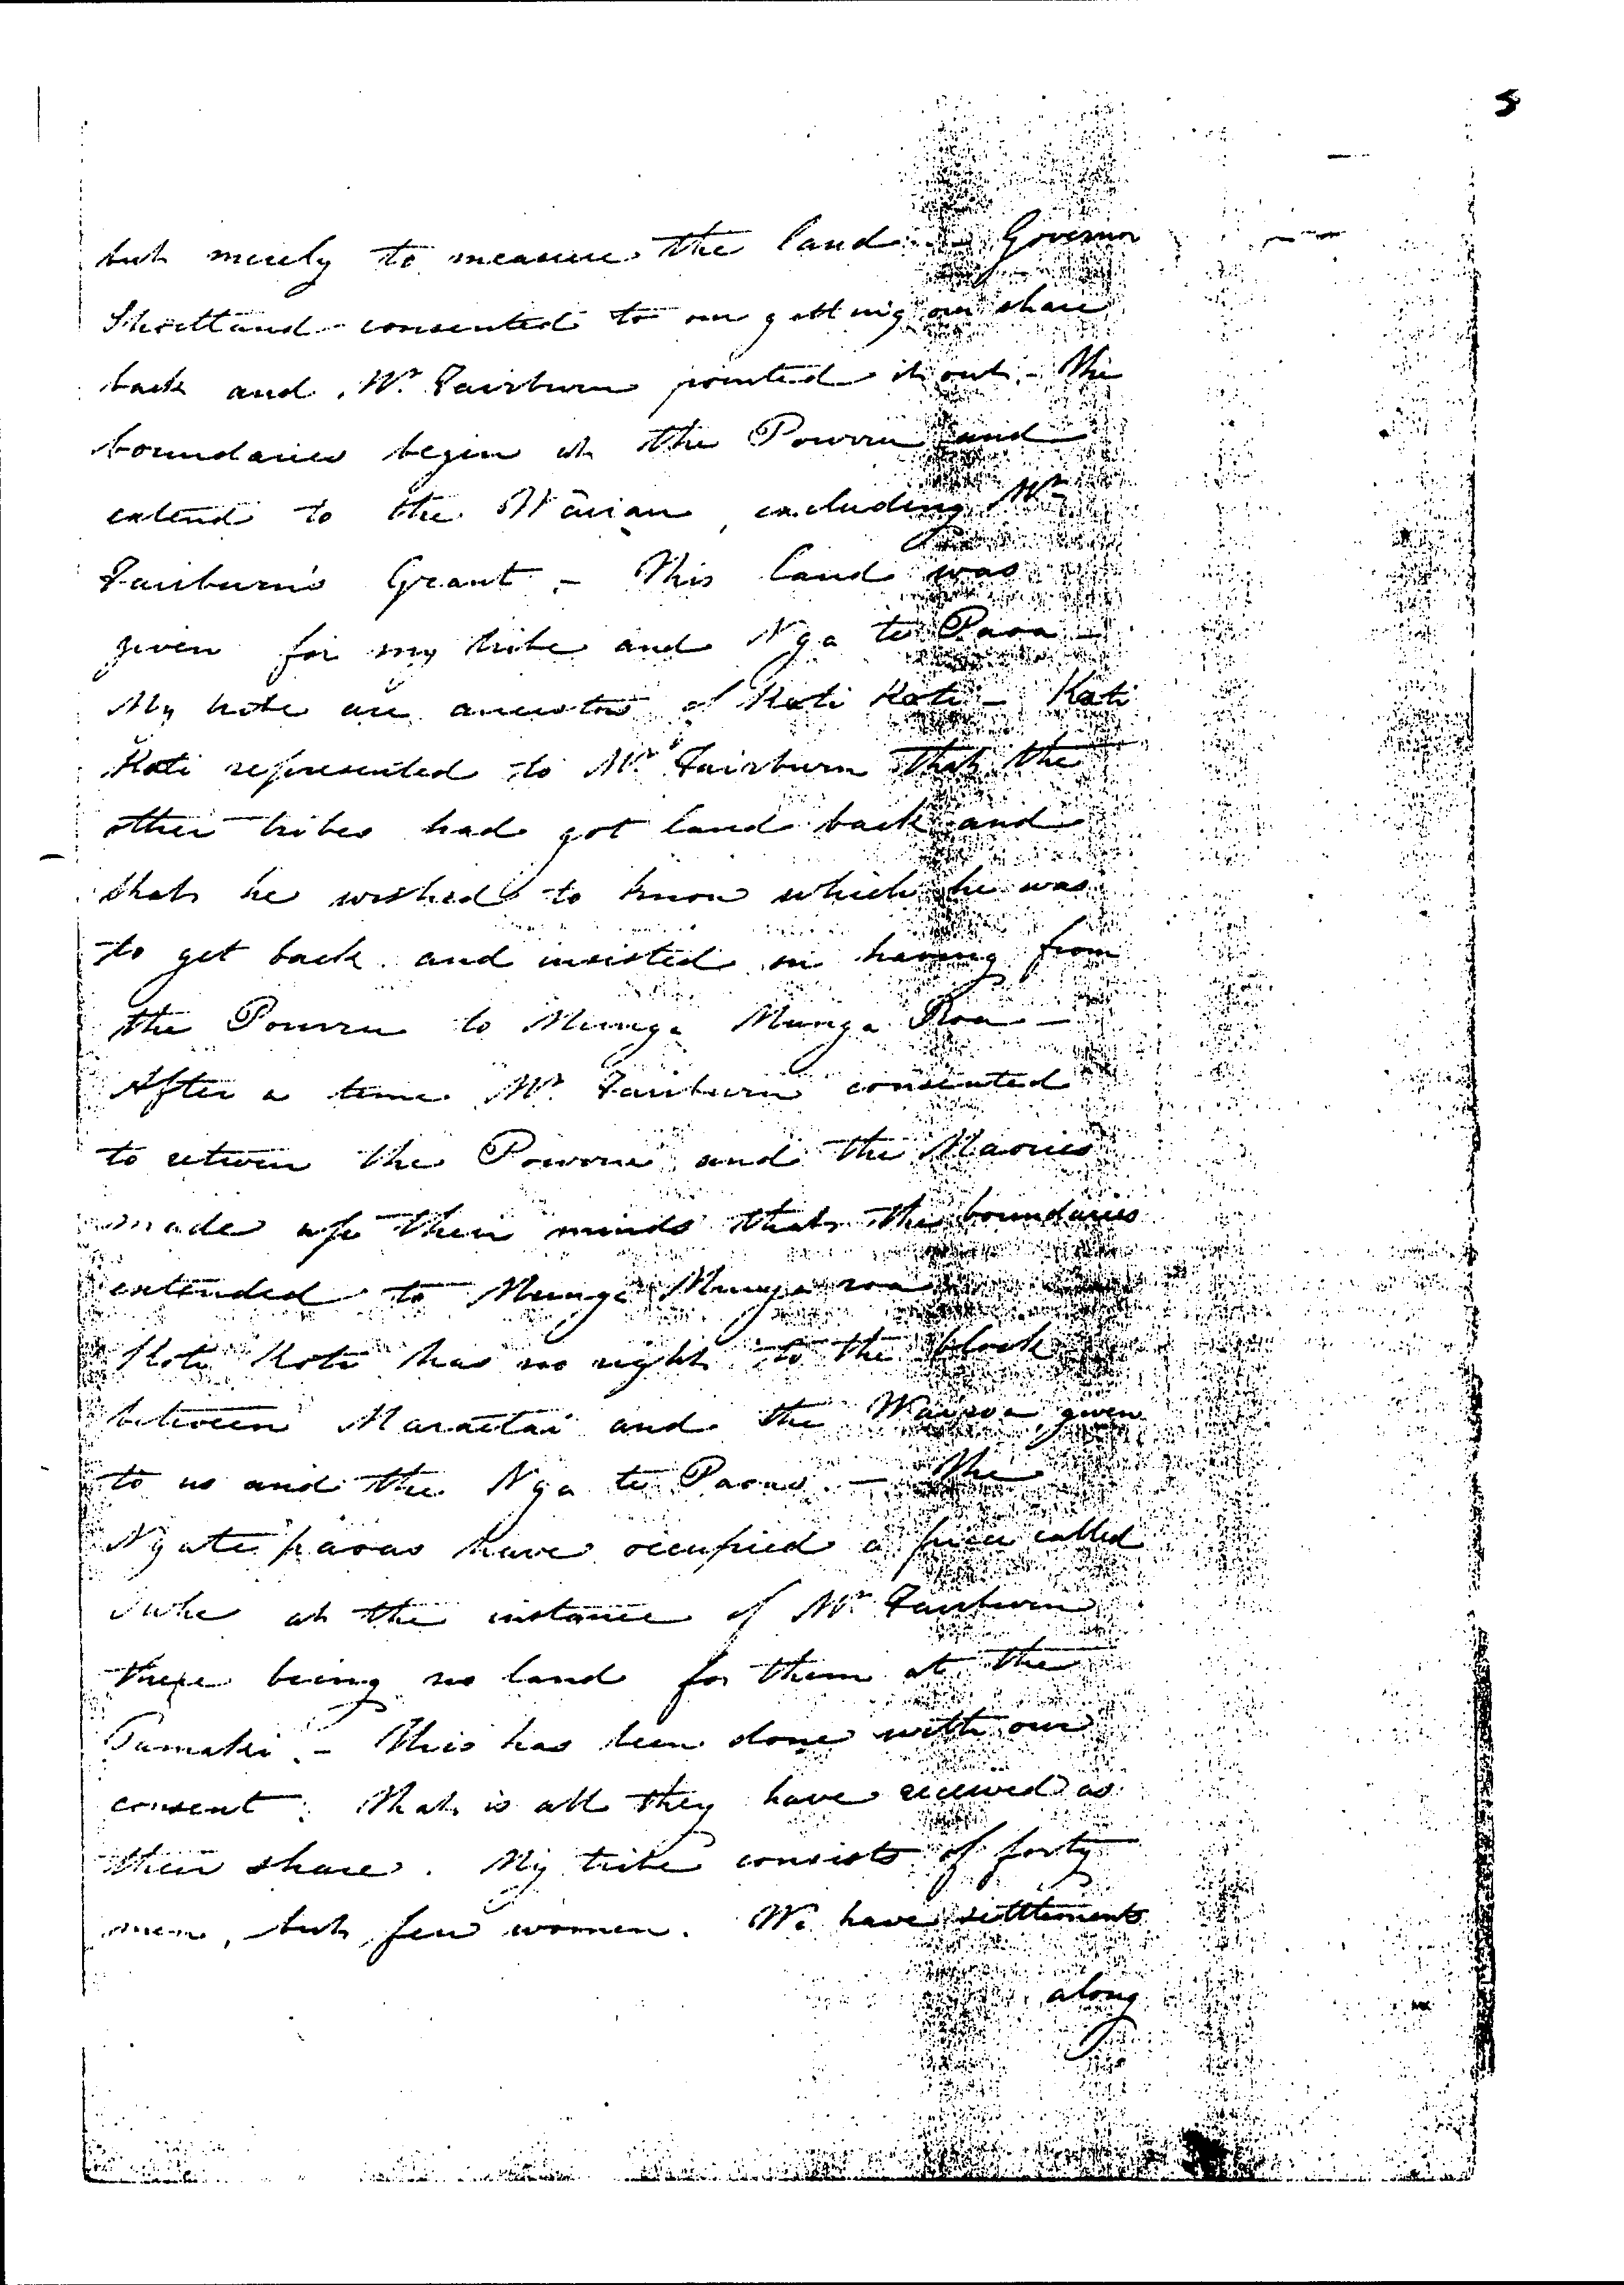 5
but merely to measure the land - Governor
Shortland consented to our getting our share
back and Mr Fairburn pointed it out. - The
boundaries begin at the Pourru and
extend to the excluding Mr
Fairburn's Grant. - This land was
given for my tribe and Nga te Paoa -
My tribe are ancestors of Kati Kati - Kati
Kati represented to Mr Fairburn that the
other tribes had got land back and
that he wished to know which he was
to get back and insisted on having from
the Pourru to Munga Munga Roa -
After a time Mr Fairburn consented
to return the Pourru and the Maories
made up their minds that the boundaries
extended to Munga Munga roa
Kati Kati has no right to the block
between Maraetai and the Wairoa given
to us and the Nga te Paoas. - The
Ngatepaoas have occupied a piece called
at the instance of Mr Fairburn
there being no land for them at the
Tamaki. - This has been done with our
consent. That is all they have received as
their share. My tribe consists of forty
men, but few women. We have settlements
along